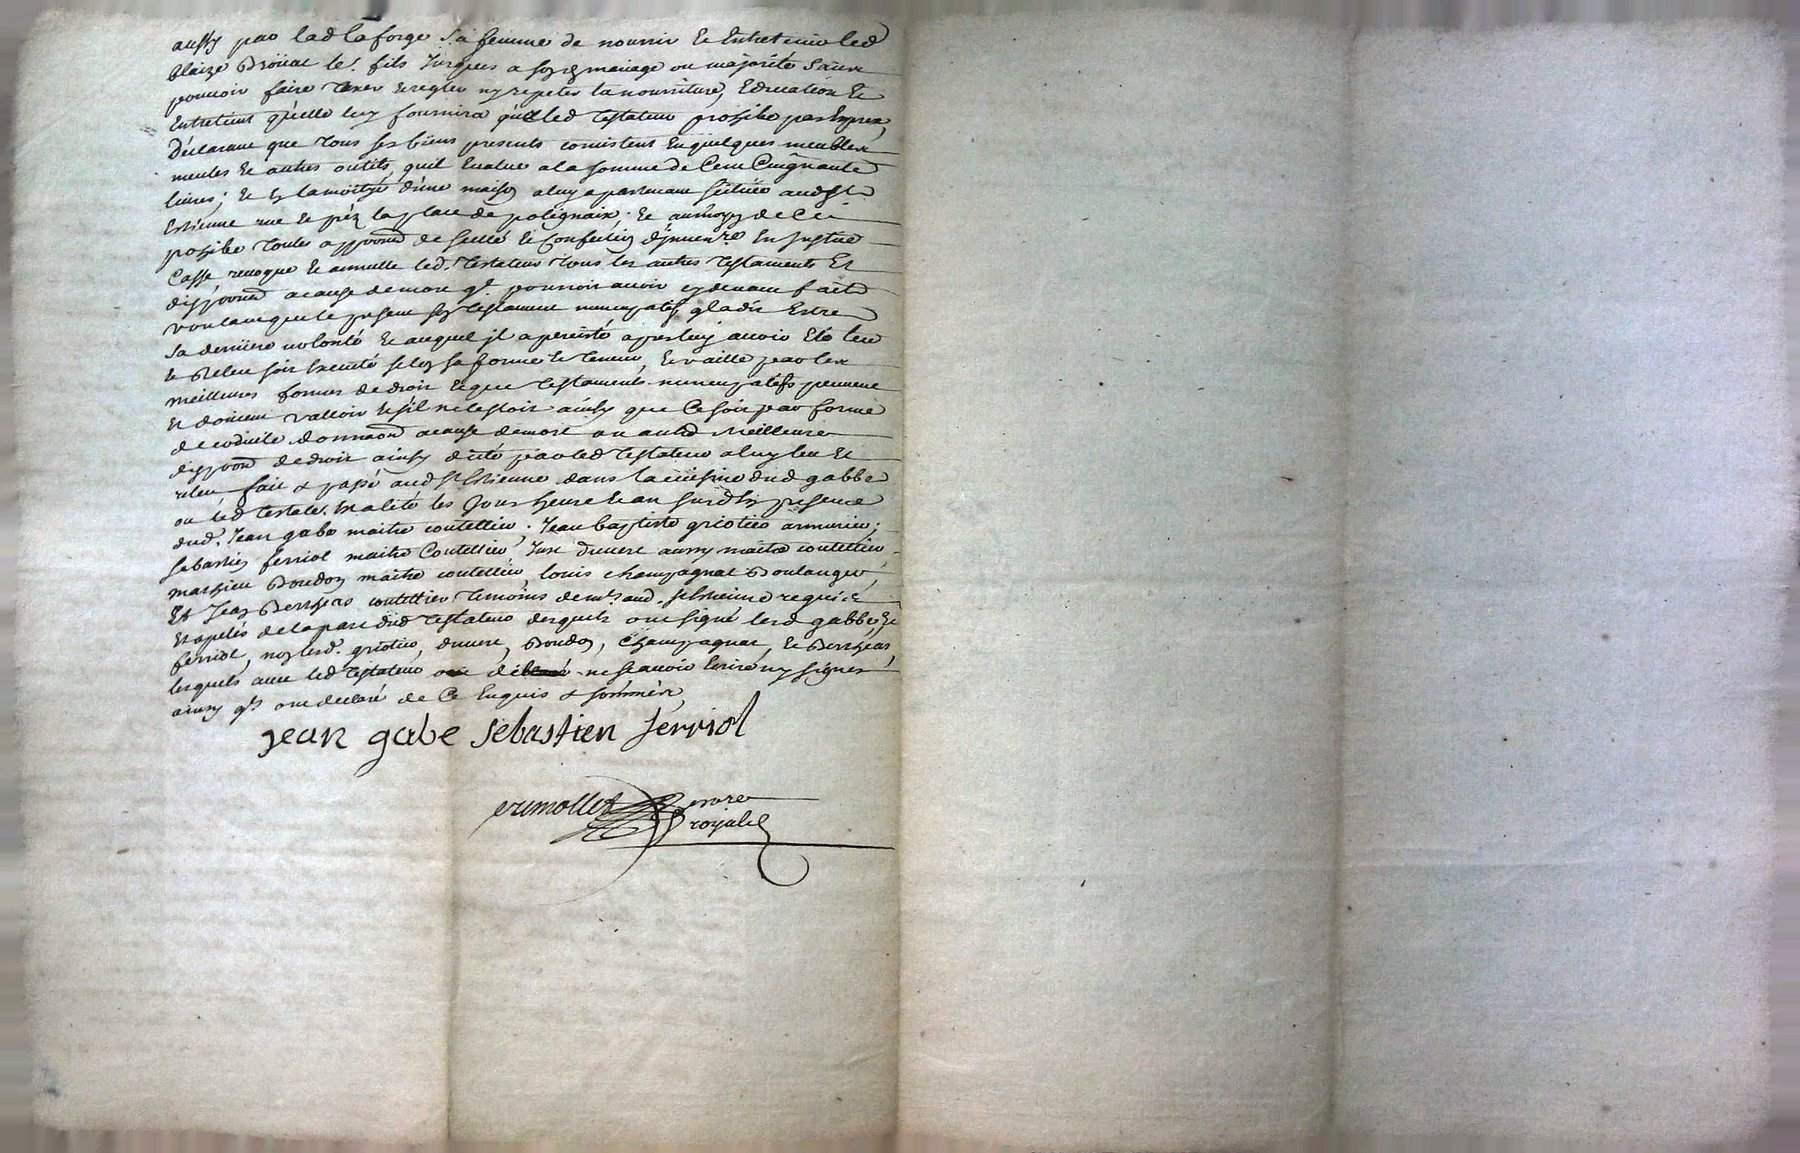 aussy par lad laforge sa femme de nourrir et Entretenir led
Blaize Drouac le. fils jusques a son mariage ou majorité sans
pouvoir faire taxer et regler ny repeter la nourriture, Education et
Entretient qu'elle luy fournira que led testateur prohibe par exprex,
Declarant que tous ses biens presents consistent En quelques meubles
meules et autres outils, quil Evalue a la somme de Cent Cinquante
livres; et En la moityé d'une maison a luy apartenant scituée aud St
Estienne rue et préz la place de polignaix; et au moyen de Ce
prohibe toutes appoond de scellé et Confection d'jnuenre En justice
Casse revoque et annulle led. testateur tous les autres testaments Et
dispoond a cause de mort ql pourroit avoir cy devant faits
voulant que le present son testament nuncupatif ql a dit Estre
sa derniere volonté et auquel jl a percisté apres luy avoir Eté leu
et Releu soit Executé selon sa forme et teneur, et vaille par les
meilleures formes de droit et que testaments nuncupatifs peuvent
et doivent valloir et s'il ne lestoit ainsy que Ce soit par forme
de codicile donnaond a cause de mort ou autre Meilleure
dispoond de droit ainsy dicté par led testateur a luy leu et
releu fait et passé aud St Etienne dans la cuisine dud gabbe
ou led testatr. les jour heure et an susdits presence
dud. Jean gabe maitre coutellier. Jean baptiste griotier armurier;
sebastien ferriol maitre Coutellier, Just duvert aussy maitre coutellier
mathieu Boudon maitre coutellier, louis champagnat Boulanger,
Et Jean Berthéas coutellier temoins aud. St Etienne requis
Et apelés de la part dud testateur desquels ont signé lesd gabbe, et
ferriol, non lesd. griotier, duvert, Boudon, Champagnat, et Berthéas,
lesquels avec led testateur ne sçavoir Ecrire ny signer
ainsy qls ont declaré de Ce Enquis et sommés
jean gabe sebastien ferriol
erimollet
royal